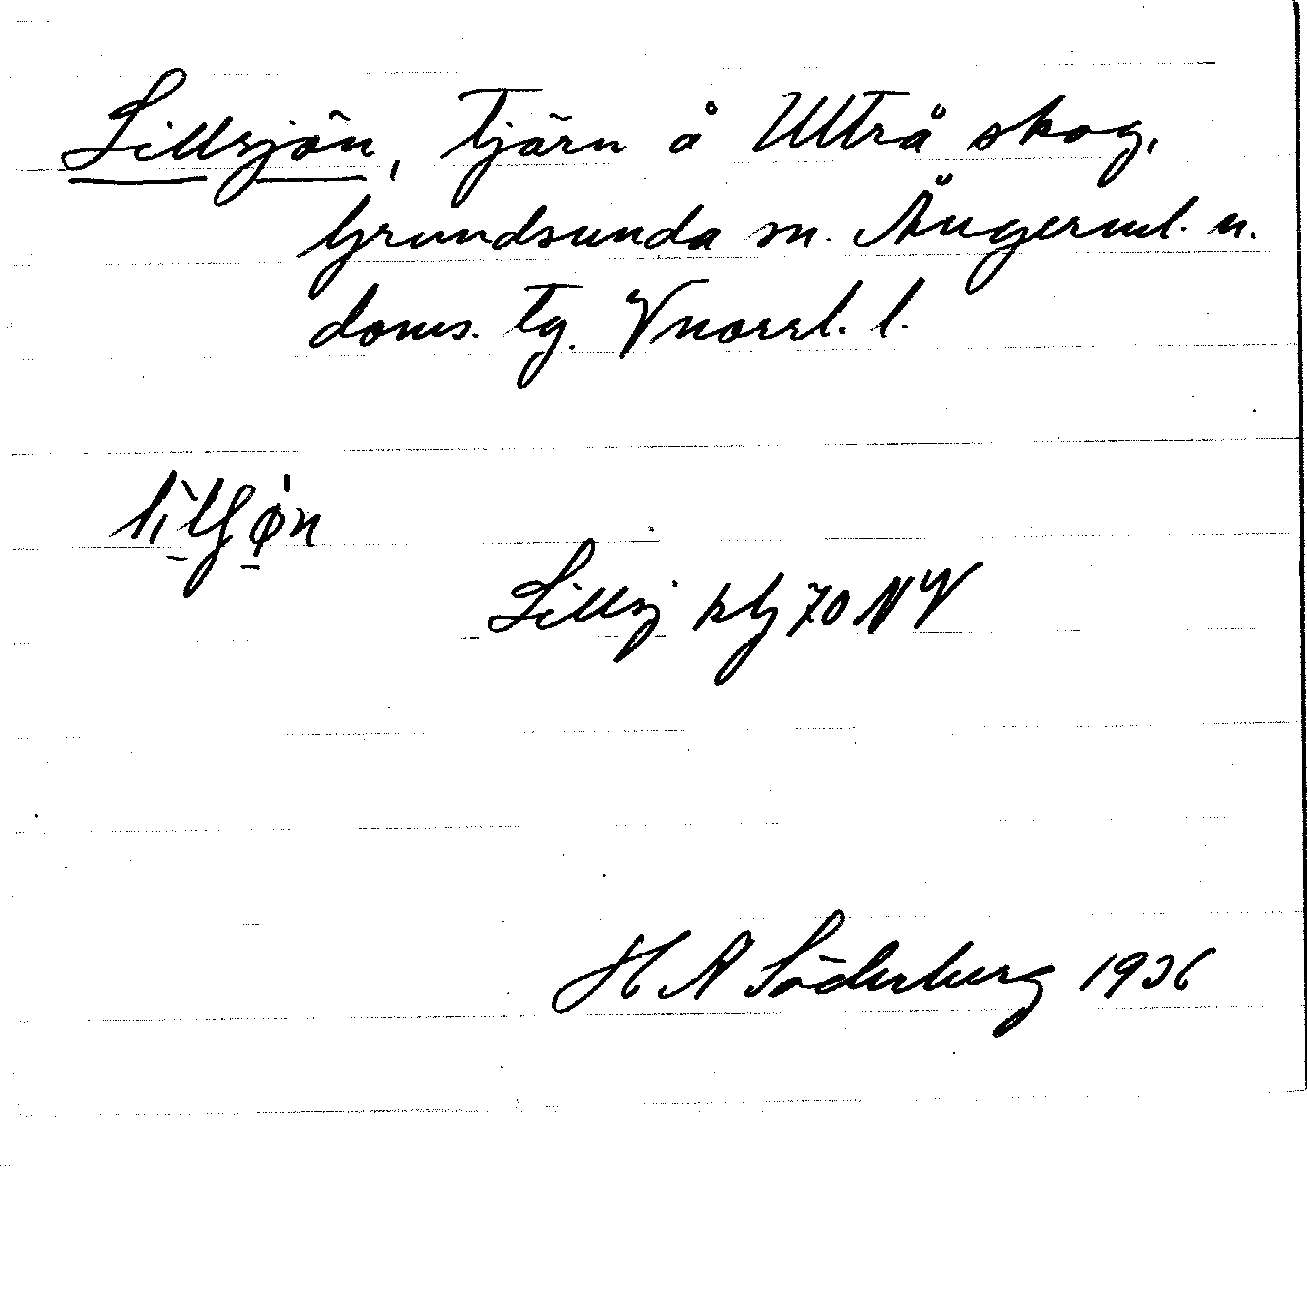 Lillsjön, tjärn å Utträ skog,
Grundsunda sn. Ångerml. n.
doms. tg. Vnorrl. l.
Lillsj kbl 70 NV
H A Söderberg 1936